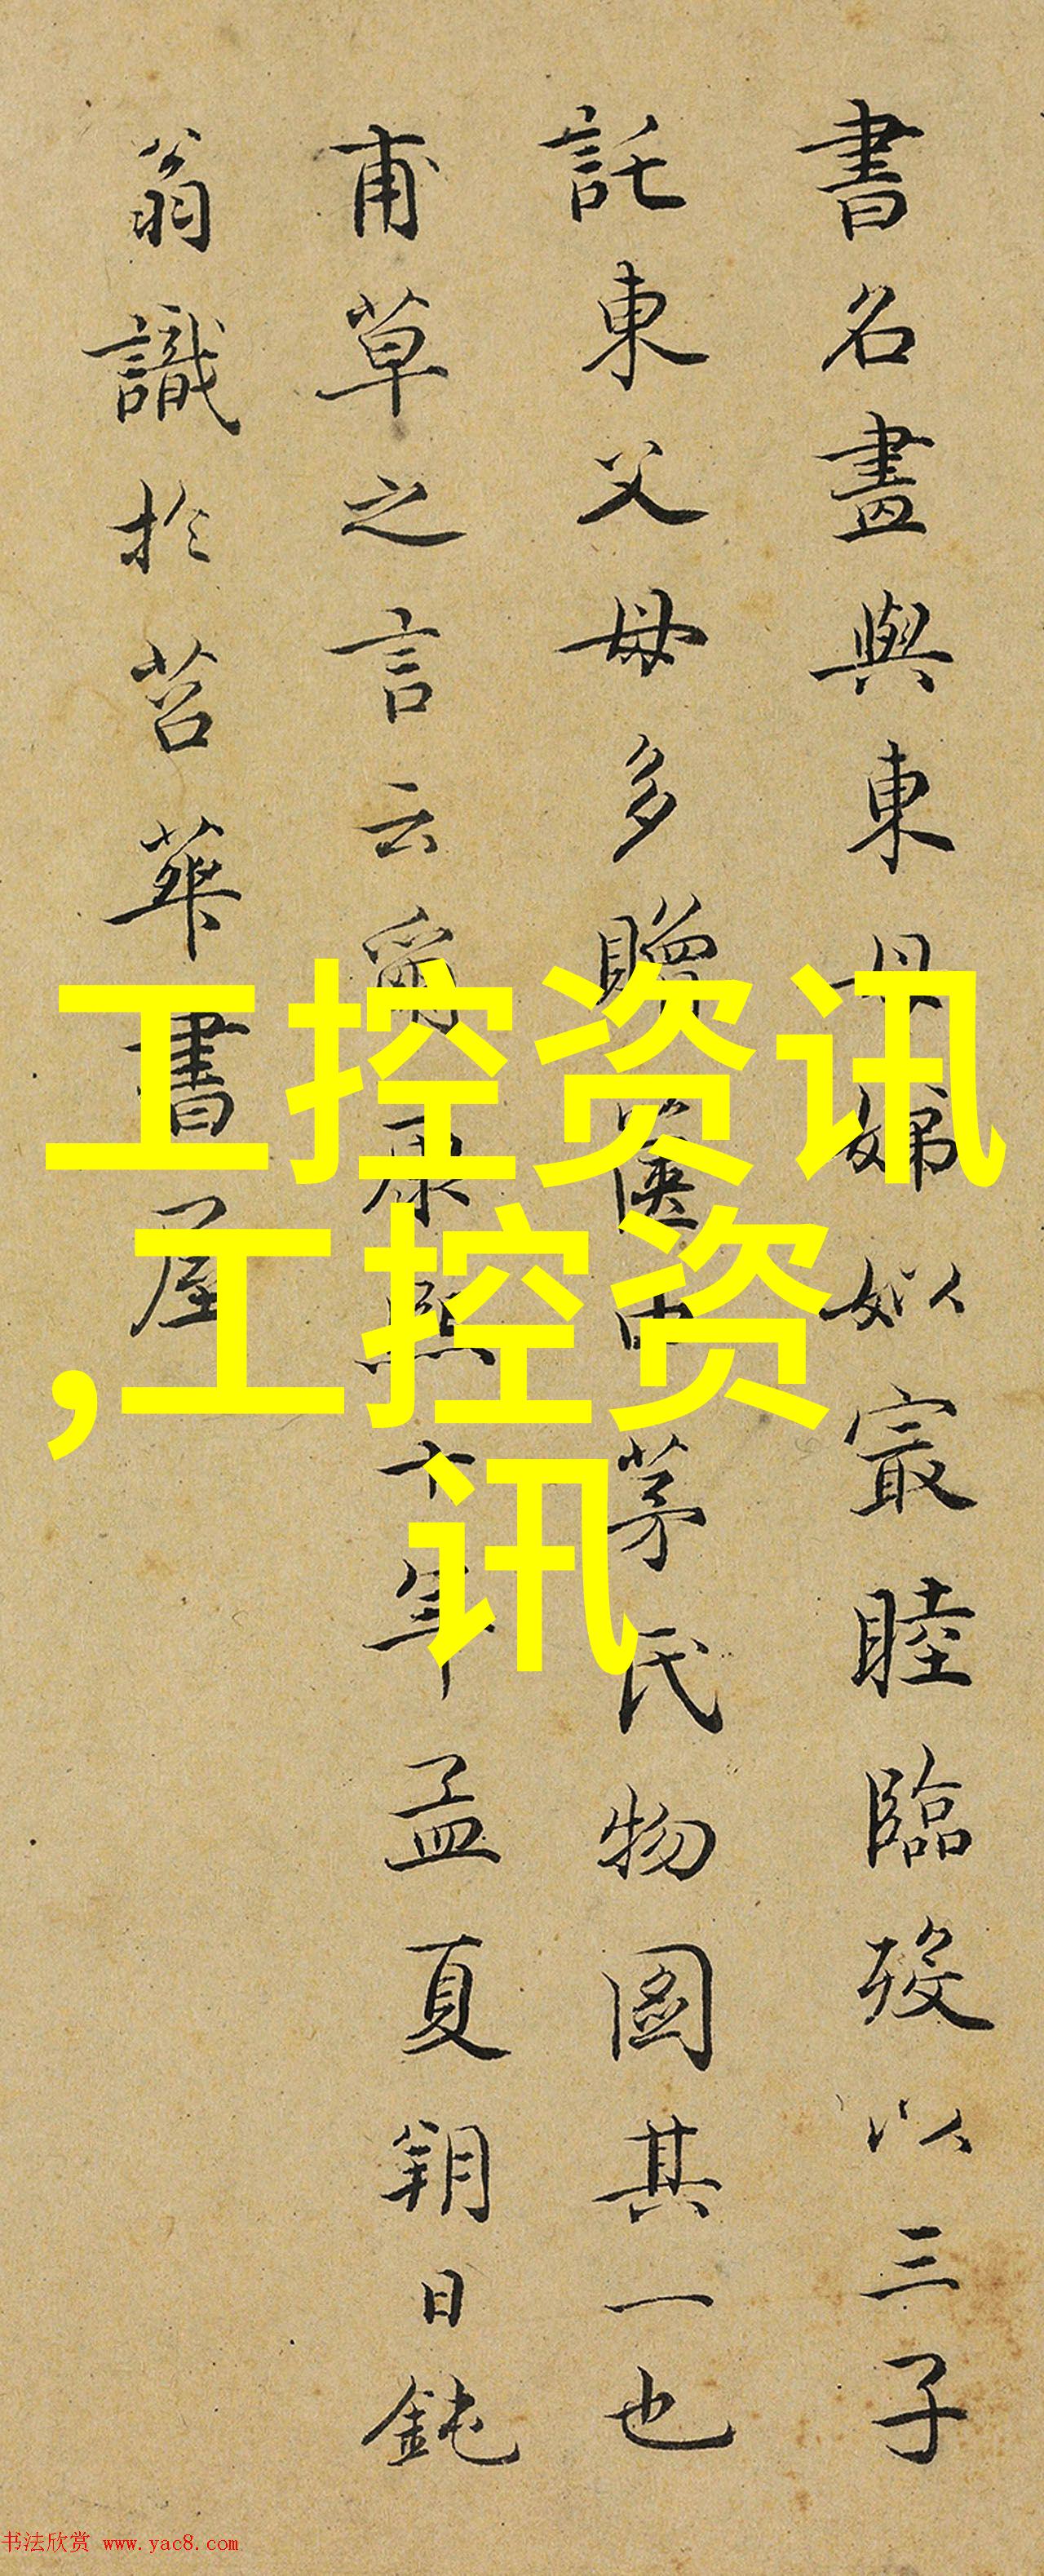 書名畫與東母婦姒冣睦臨歿以三子
託東父母多贈匳中茅氏物圖其一也
甫草之言云爾康熙十年孟夏朔日鈍
翁識於苕華書屋
工控资讯
,工控资
讯
书法欣赏 www.yac8.com